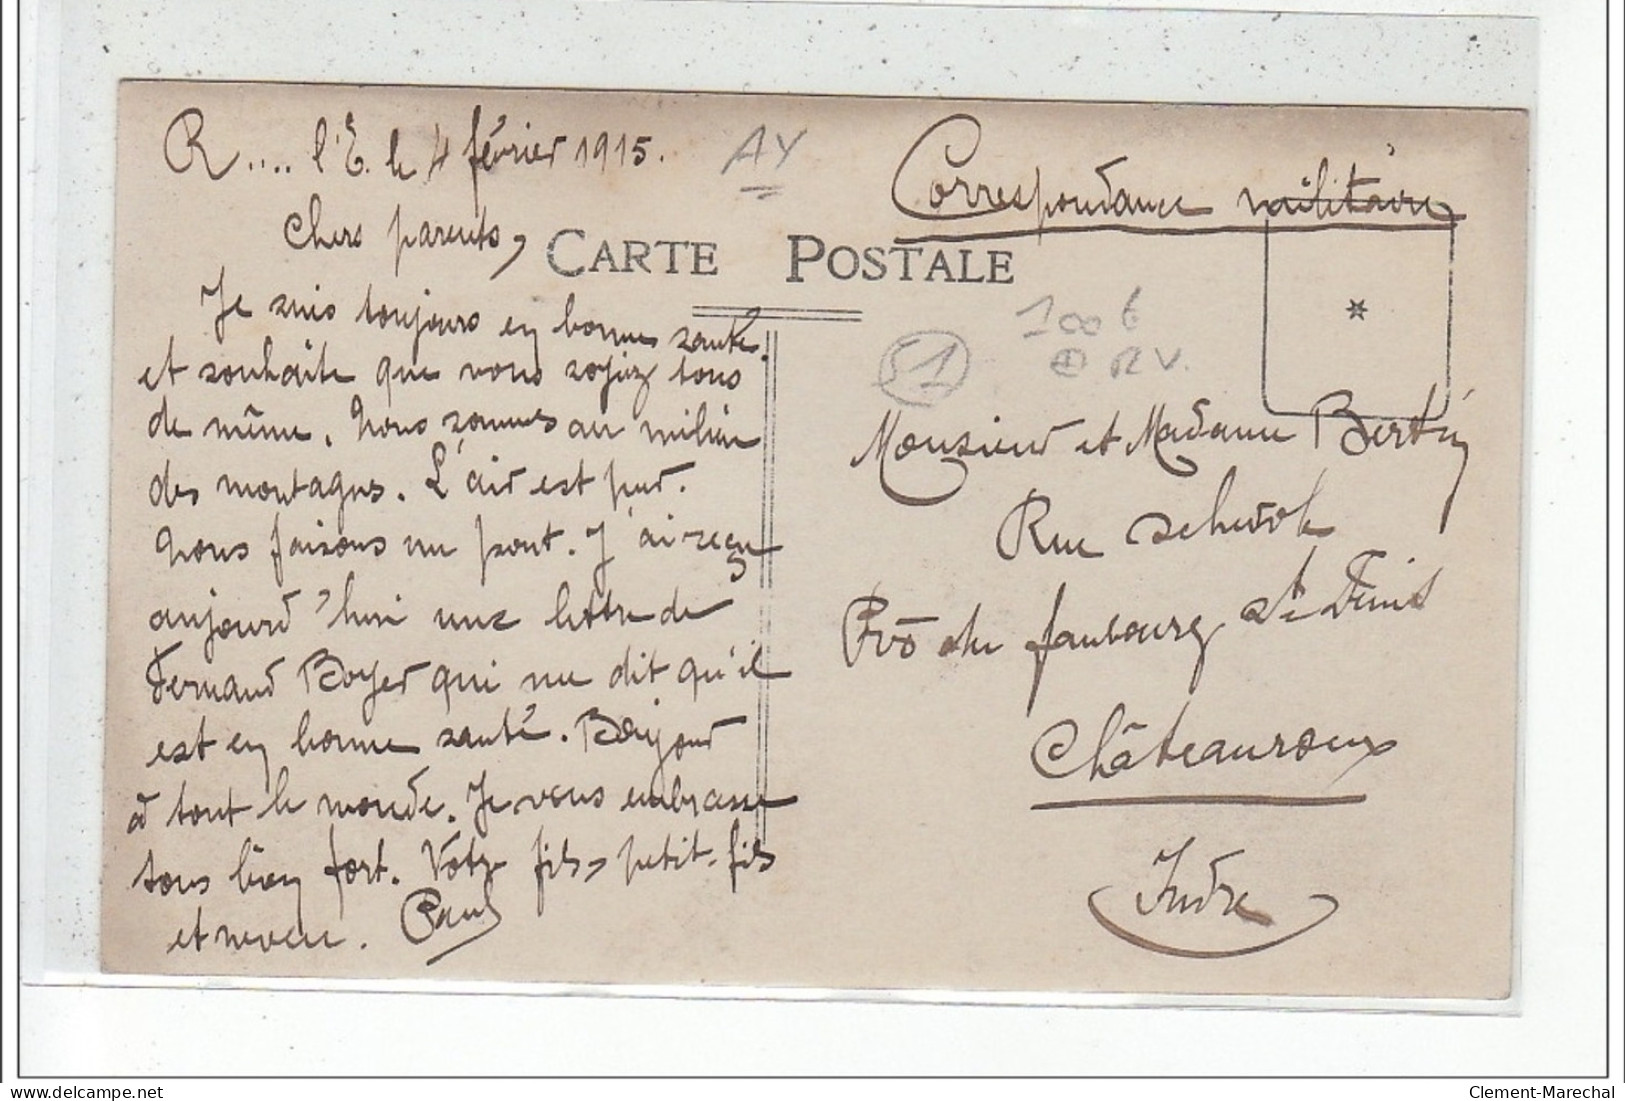 R.... l'E. le 4 février 1915.
AY
Correspondance militaire
Chers parents,
CARTE POSTALE
Je suis toujours en bonne santé.
et souhaite que vous soyiez tous
de même. Nous sommes au milieu
des montagnes. L'air est pur.
Nous faisons un pont. J'ai reçu
aujourd'hui une lettre de
Fernand Boyer qui me dit qu'il
est en bonne santé. Bonjour
à tout le monde. Je vous embrasse
tous bien fort. Votre fils, petit-fils
et neveu. Paul
100 €
51
RV.
Monsieur et Madame Bertin
Rue
Prò du faubourg St Denis
Châteauroux
Indre
Clement-Marechal
delcampe.net